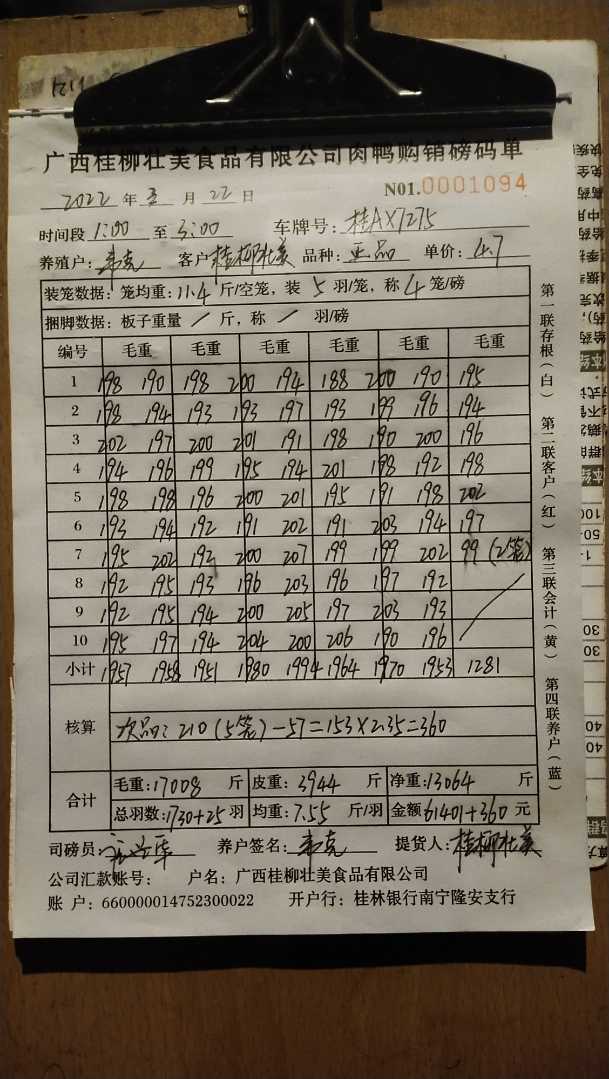 广西桂柳壮美食品有限公司肉鸭购销磅码单
2022 年 5 月 22 日 N01.0001094
时间段 1:00 至 3:00 车牌号: 桂AX7275
养殖户: 韦克 客户 桂柳壮美 品种: 正品 单价: 4.7
装笼数据: 笼均重: 11.4 斤/空笼, 装 5 羽/笼, 称 4 笼/磅
捆脚数据: 板子重量 / 斤, 称 / 羽/磅
编号 毛重 毛重 毛重 毛重 毛重 毛重
1 198 190 198 200 194 188 200 190 195
2 198 194 193 193 197 193 199 196 194
3 202 197 200 201 191 198 190 200 196
4 194 196 199 195 194 201 198 192 198
5 198 198 196 200 201 195 191 198 202
6 193 194 192 191 202 191 203 194 197
7 195 202 192 200 207 199 199 202 99 (2笼)
8 192 195 193 196 203 196 197 192
9 192 195 194 200 205 197 203 193
10 195 197 194 204 200 206 190 196
小计 1957 1958 1951 1980 1994 1964 1970 1953 1281
核算 次品: 210 (5笼) - 57 = 153 × 2.35 = 360
合计 毛重: 17008 斤 皮重: 3944 斤 净重: 13064 斤
总羽数: 1730+25 羽 均重: 7.55 斤/羽 金额 61401+360 元
司磅员: 养户签名: 韦克 提货人: 桂柳壮美
公司汇款账号: 户名: 广西桂柳壮美食品有限公司
账 户: 660000014752300022 开户行: 桂林银行南宁隆安支行
第一联存根(白) 第二联客户(红) 第三联会计(黄) 第四联养户(蓝)